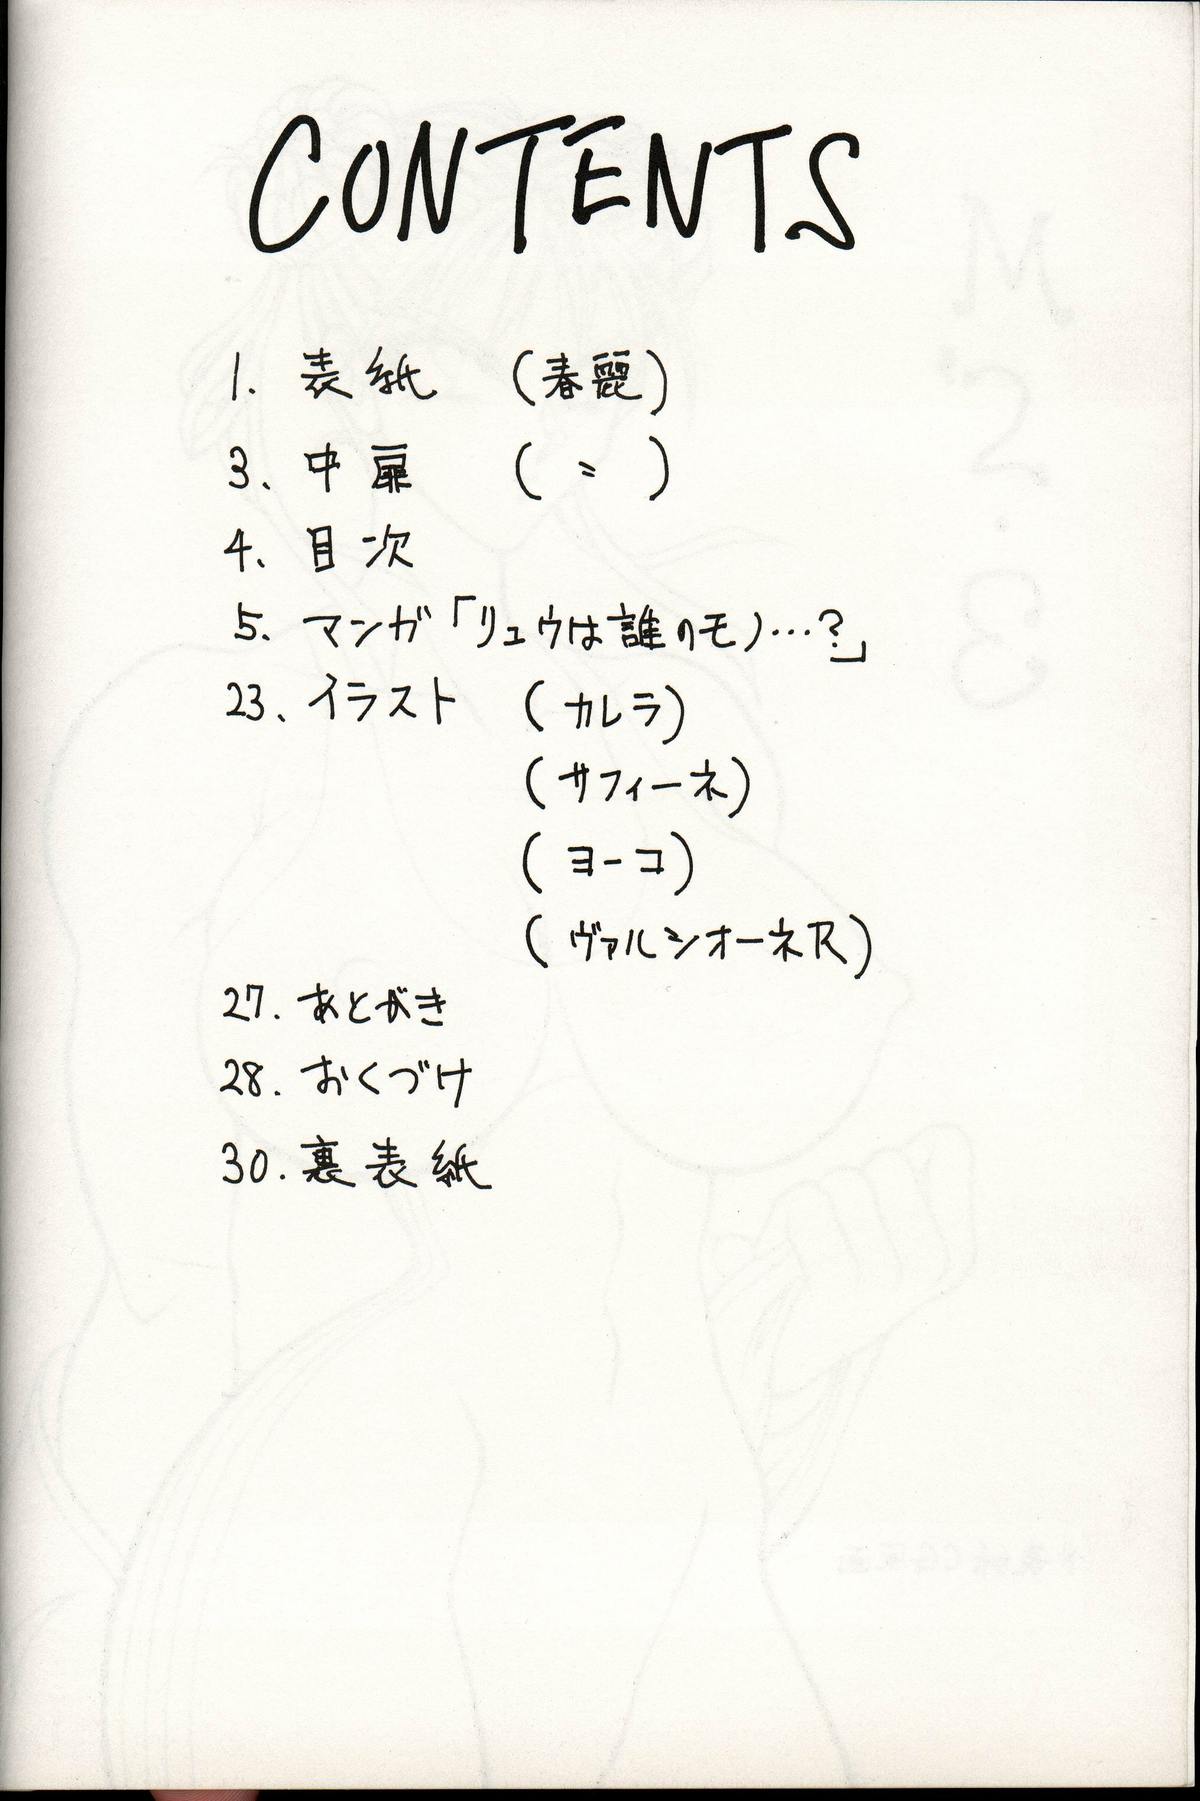 CONTENTS
1. 表紙 (春麗)
3. 中扉 ( 〃 )
4. 目次
5. マンガ「リュウは誰のモノ…?」
23. イラスト (カレラ)
(サフィーネ)
(ヨーコ)
(ヴァルシオーネR)
27. あとがき
28. おくづけ
30. 裏表紙